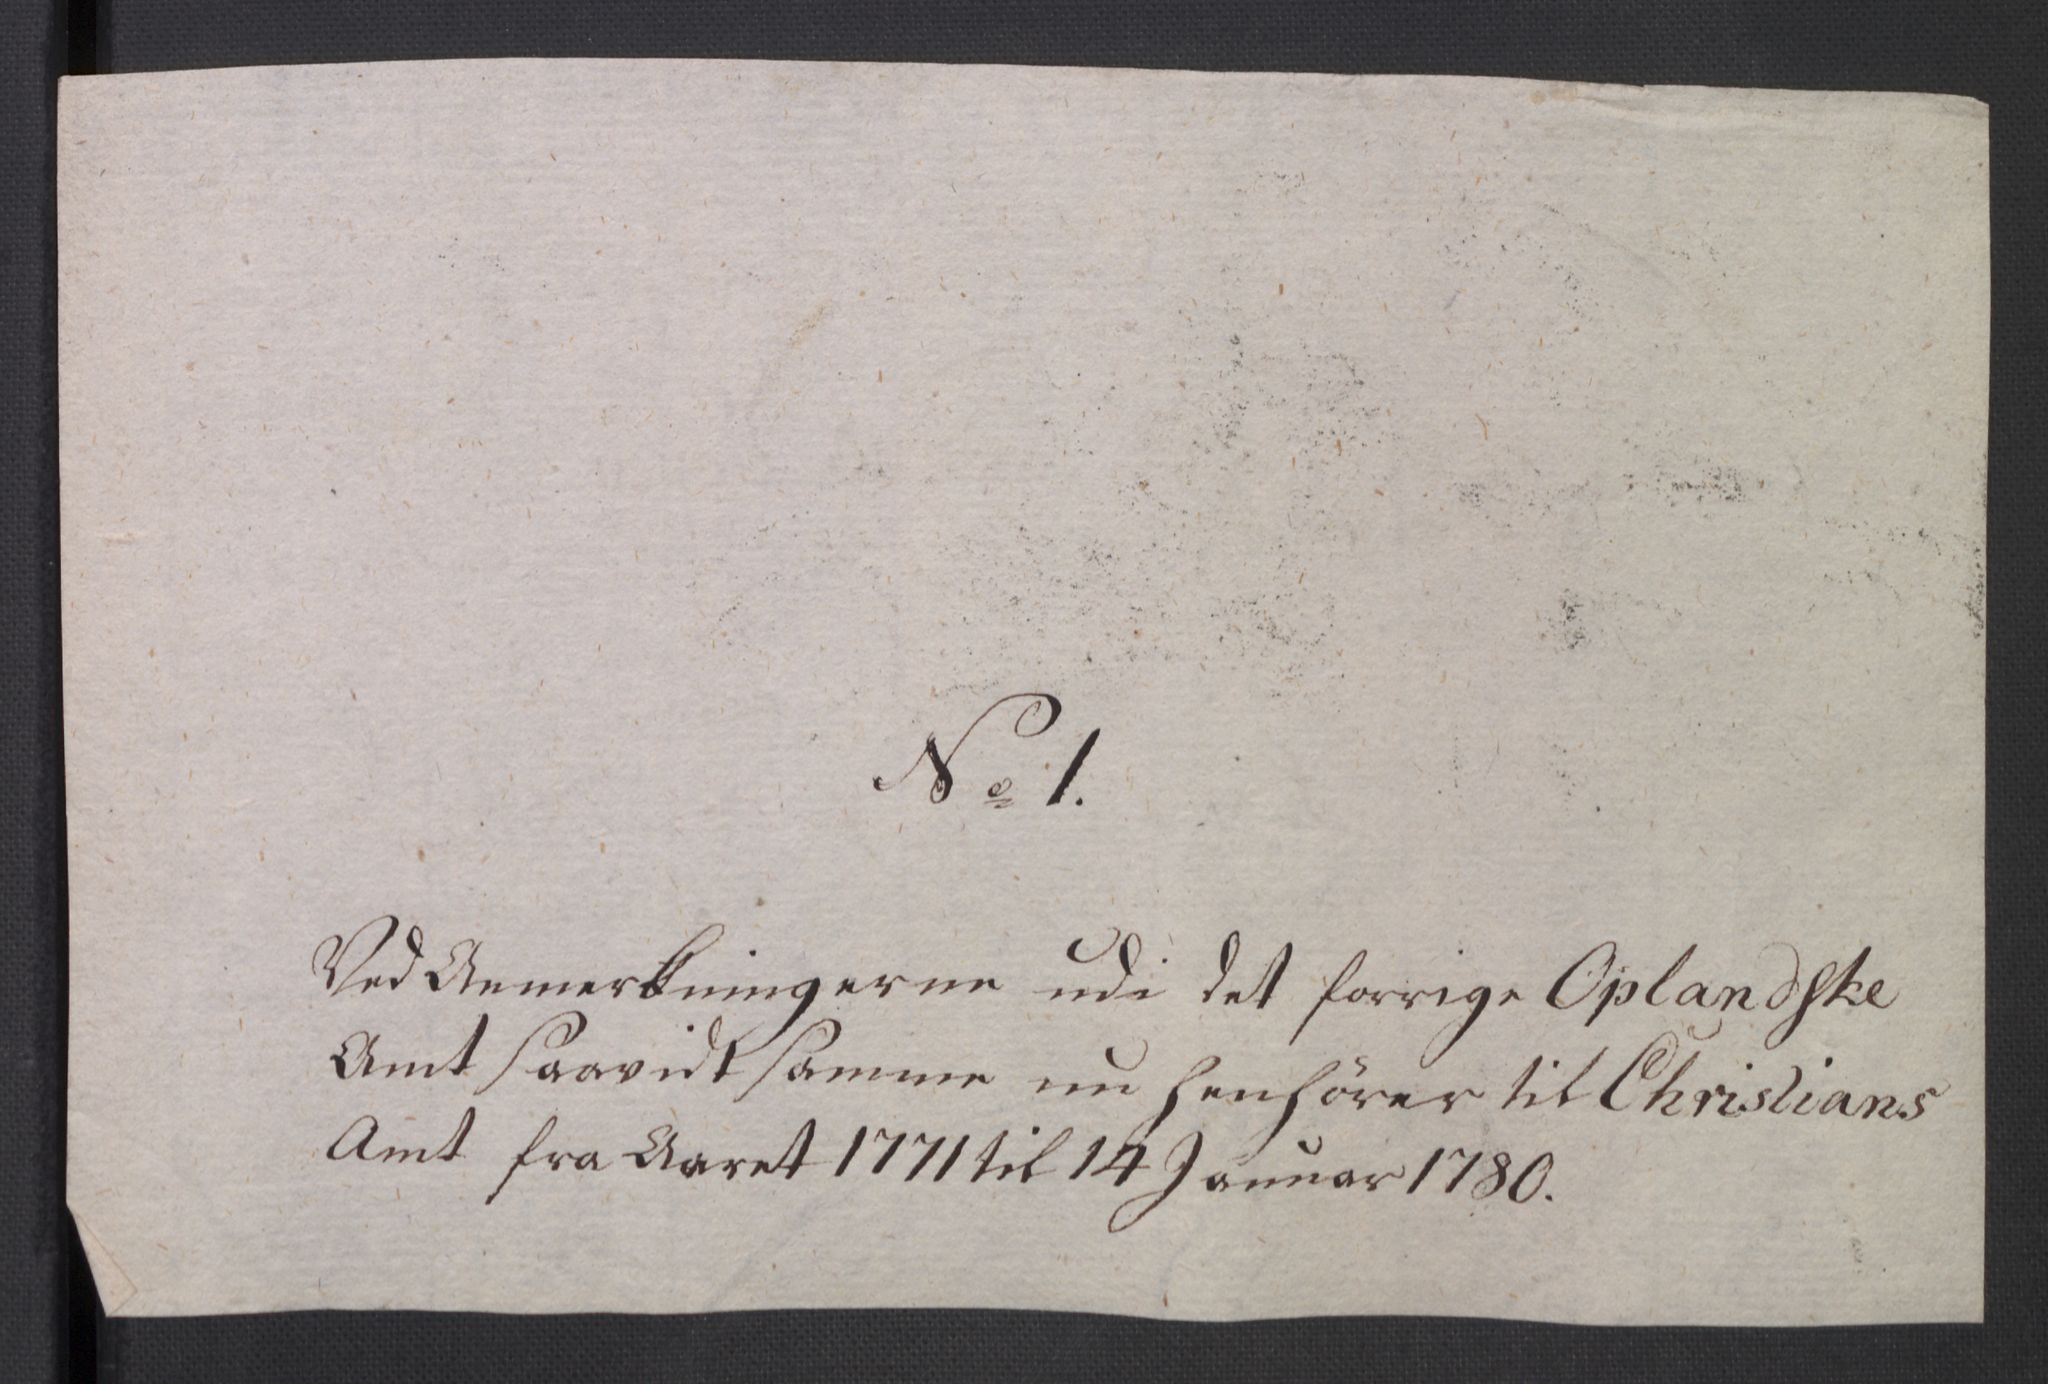 No 1.
Ved Anmerkningerne udi det forrige Oplandske
Amt saavidt samme nu henhörer til Christians
Amt fra Aaret 1771 til 14 Januar 1780.